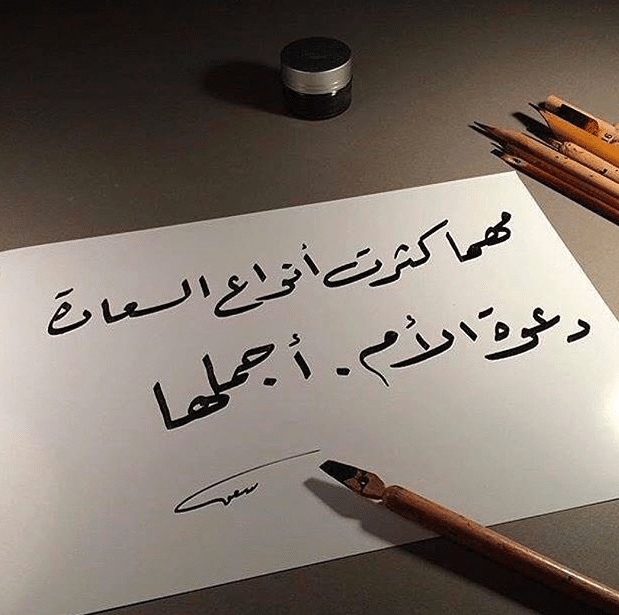 مهما كثرت أنواع السعادة
دعوة الأم . أجملها